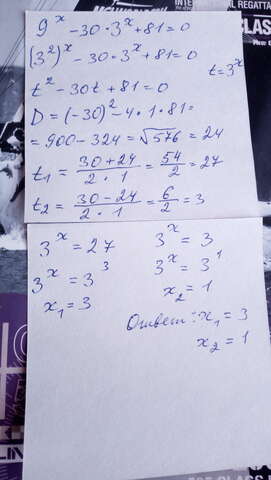 9^x - 30·3^x + 81 = 0
(3²)^x - 30·3^x + 81 = 0
t = 3^x
t² - 30t + 81 = 0
D = (-30)² - 4·1·81 =
= 900 - 324 = √576 = 24
t₁ = (30+24)/(2·1) = 54/2 = 27
t₂ = (30-24)/(2·1) = 6/2 = 3
3^x = 27 3^x = 3
3^x = 3³ 3^x = 3¹
x₁ = 3 x₂ = 1
Ответ: x₁ = 3
x₂ = 1
REGATTA
CLAS